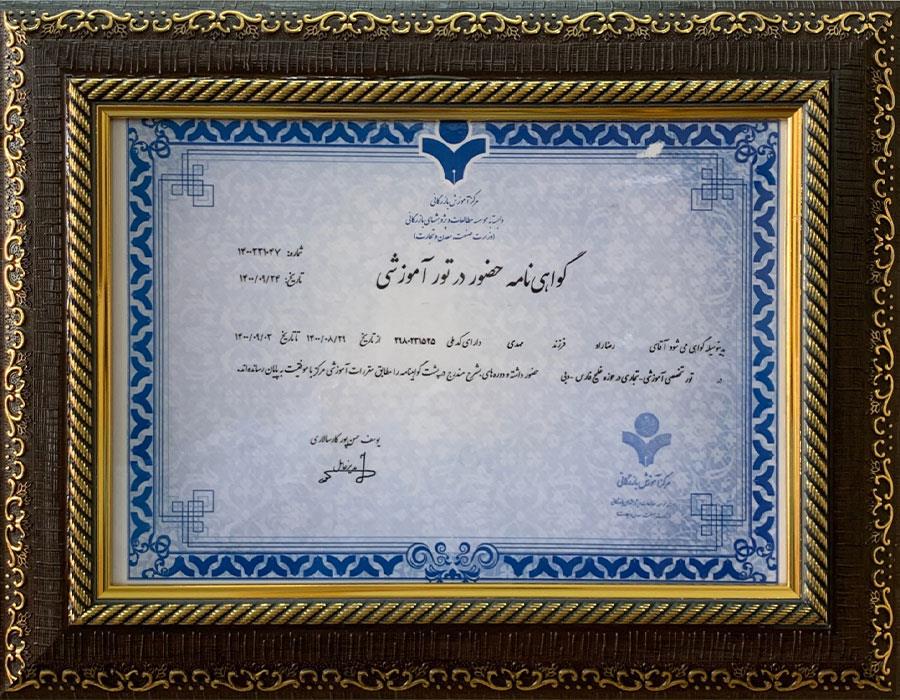 مرکز آموزش بازرگانی
وابسته به موسسه مطالعات و پژوهشهای بازرگانی
(وزارت صنعت، معدن و تجارت)
شماره: ۱۴۰۰۲۳۱۰۴۷
تاریخ: ۱۴۰۰/۰۹/۲۴
گواهی نامه حضور در تور آموزشی
بدینوسیله گواهی می شود آقای رضا راد فرزند مهدی دارای کد ملی ۲۹۸۰۲۳۱۵۲۵ از تاریخ ۱۴۰۰/۰۸/۲۹ تا تاریخ ۱۴۰۰/۰۹/۰۳
در تور تخصصی آموزشی- تجاری در حوزه خلیج فارس - دبی حضور داشته و دوره‌های بشرح مندرج در پشت گواهینامه را مطابق مقررات آموزشی مرکز با موفقیت به پایان رسانده‌اند.
یوسف حسن پور کارسالاری
مدیرعامل
مرکز آموزش بازرگانی